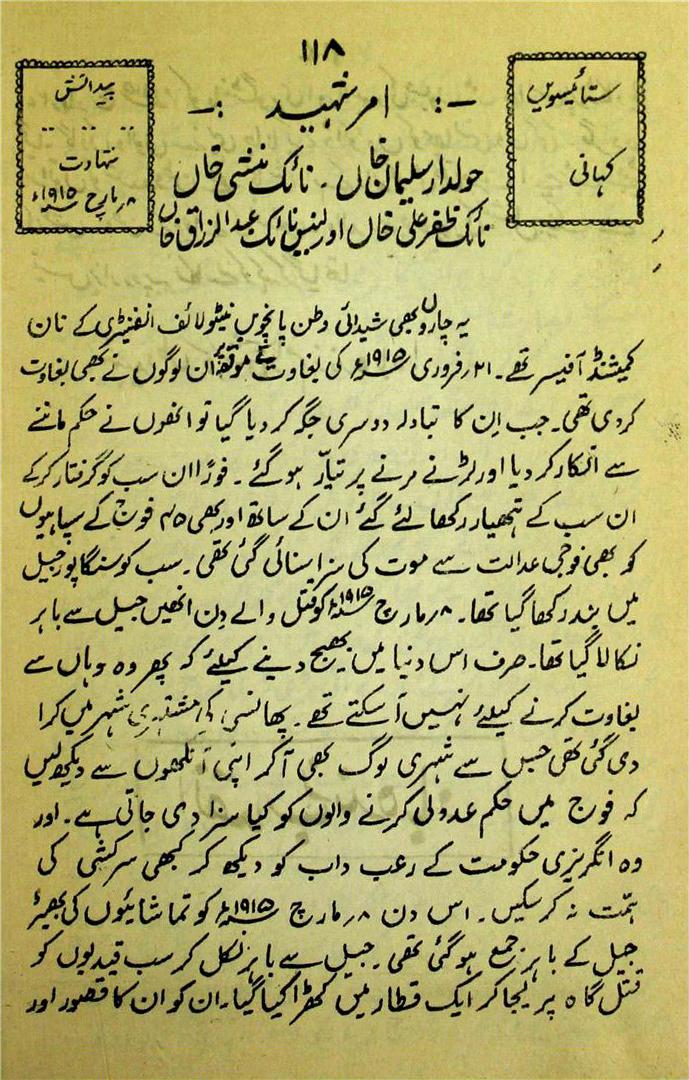 ۱۱۸
ستائیسویں
کہانی
-: امر شہید :-
حولدار سلیمان خاں ۔ نائک منشی خاں
نائک ظفر علی خاں اور لینس نائک عبدالرزاق خاں
پیدائش
.. .. .. ..
شہادت
۸؍مارچ ۱۹۱۵ء
یہ چاروں بھی شیدائی وطن پانچویں نیٹو لائف انفنیٹری کے نان
کمیشنڈ آفیسر تھے۔ ۲۱؍فروری ۱۹۱۵ء کی بغاوت کے موقعہ پر ان لوگوں نے بھی بغاوت
کردی تھی۔ جب ان کا تبادلہ دوسری جگہ کر دیا گیا تو انھوں نے حکم ماننے
سے انکار کر دیا اور لڑنے مرنے پر تیار ہو گئے ۔ فوراً ان سب کو گرفتار کرکے
ان سب کے ہتھیار رکھا لئے گئے ان کے ساتھ اور بھی ۴۵ فوج کے سپاہیوں
کو بھی فوجی عدالت سے موت کی سزا سنائی گئی تھی ۔ سب کو سنگاپور جیل
میں بند رکھا گیا تھا۔ ۸؍مارچ ۱۹۱۵ء کو قتل والے دن انھیں جیل سے باہر
نکالا گیا تھا۔ صرف اس دنیا میں بھیج دینے کیلئے کہ پھر وہ وہاں سے
بغاوت کرنے کیلئے نہیں آسکتے تھے ۔ پھانسی کی مشتہری شہر میں کرا
دی گئی تھی جس سے شہری لوگ بھی آکر اپنی آنکھوں سے دیکھ لیں
کہ فوج میں حکم عدولی کرنے والوں کو کیا سزا دی جاتی ہے۔ اور
وہ انگریزی حکومت کے رعب داب کو دیکھ کر کبھی سرکشی کی
ہمّت نہ کر سکیں۔ اس دن ۸؍مارچ ۱۹۱۵ء کو تماشائیوں کی بھیڑ
جیل کے باہر جمع ہو گئی تھی ۔ جیل سے باہر نکل کر سب قیدیوں کو
قتل گاہ پر لیجا کر ایک قطار میں کھڑا کیا گیا۔ ان کو ان کا قصور اور